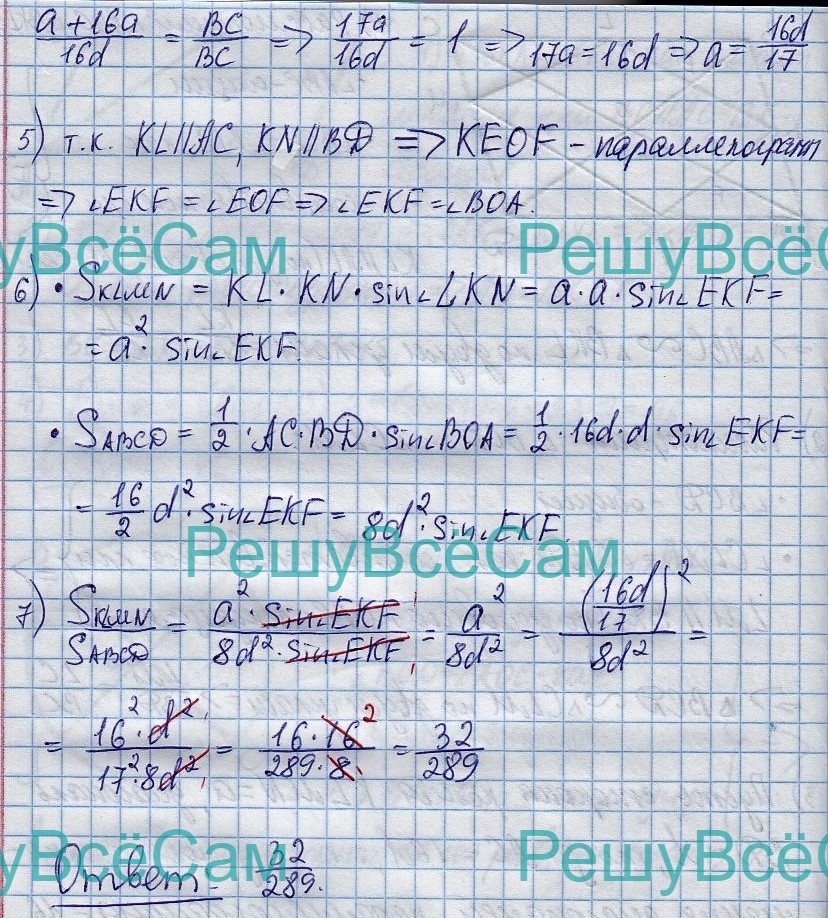 a+16a/16d = BC/BC => 17a/16d = 1 => 17a=16d => a= 16d/17
5) т.к. KL||AC, KN||BD => KEOF – параллелограмм
=> ∠EKF = ∠EOF => ∠EKF = ∠BOA.
РешуВсёСам РешуВсёСам
6) • SKLMN = KL · KN · sin∠LKN = a·a·sin∠EKF =
= a²· sin∠EKF.
• SABCD = 1/2 · AC·BD · sin∠BOA = 1/2 ·16d·d· sin∠EKF =
= 16/2 d²·sin∠EKF = 8d²·sin∠EKF.
РешуВсёСам
7) SKLMN/SABCD = a²·sin∠EKF/8d²·sin∠EKF = a²/8d² = (16d/17)²/8d² =
= 16²·d²/17²·8d² = 16·16 2/289·8 = 32/289
РешуВсёСам РешуВсёСам
Ответ: 32/289.